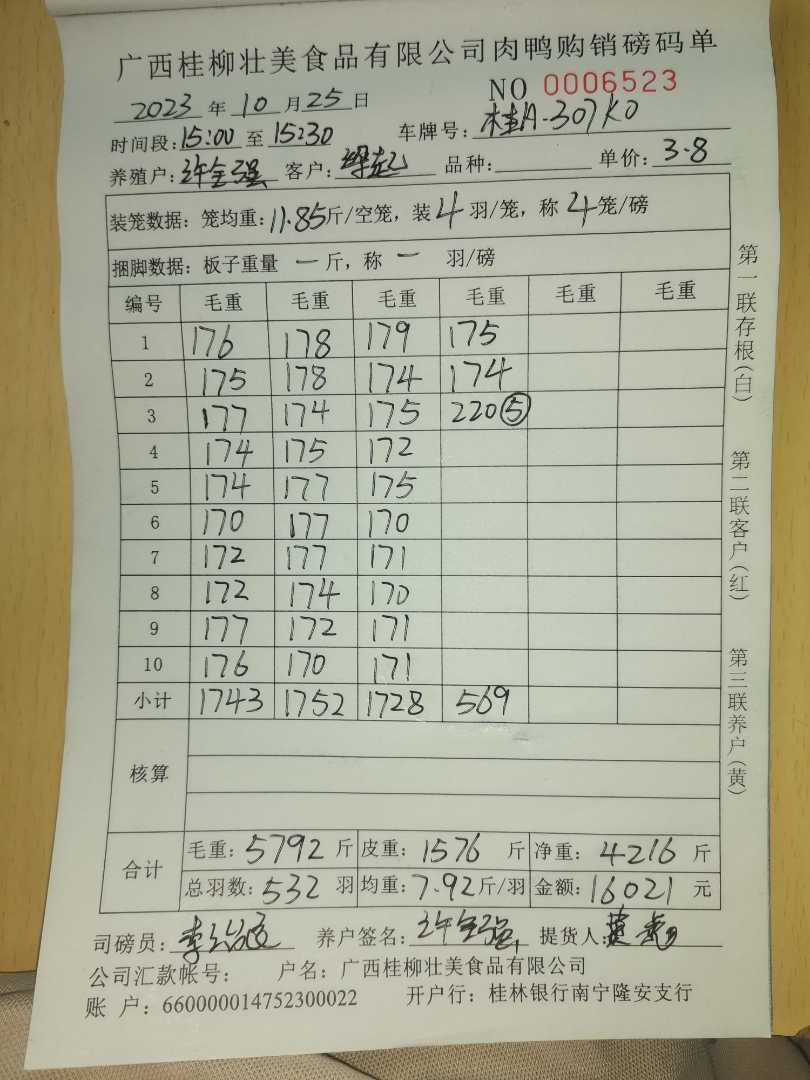 广西桂柳壮美食品有限公司肉鸭购销磅码单
NO 0006523
2023 年 10 月 25 日
时间段:15:00 至 15:30 车牌号:桂A-307K0
养殖户:许全强 客户:梁起 品种: 单价:3.8
装笼数据:笼均重:11.85斤/空笼,装4羽/笼,称4笼/磅
捆脚数据:板子重量 一 斤,称 一 羽/磅
编号 毛重 毛重 毛重 毛重 毛重 毛重
1 176 178 179 175
2 175 178 174 174
3 177 174 175 220⑤
4 174 175 172
5 174 177 175
6 170 177 170
7 172 177 171
8 172 174 170
9 177 172 171
10 176 170 171
小计 1743 1752 1728 569
核算
合计
毛重:5792斤 皮重:1576斤 净重:4216斤
总羽数:532羽 均重:7.92斤/羽 金额:16021元
司磅员: 养户签名:许全强 提货人:
公司汇款帐号: 户名:广西桂柳壮美食品有限公司
账 户:660000014752300022 开户行:桂林银行南宁隆安支行
第一联存根(白)
第二联客户(红)
第三联养户(黄)